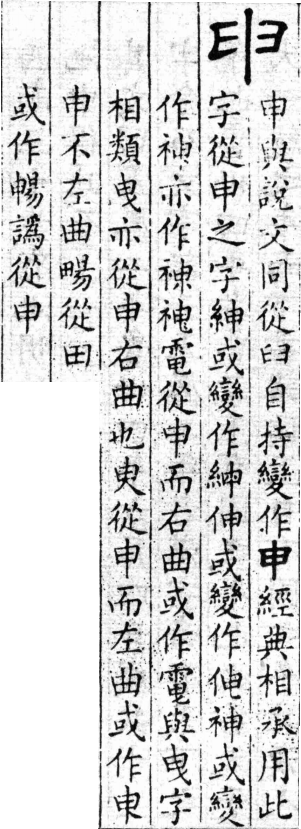 申
申與說文同從臼自持變作申經典相承用此
字從申之字紳或變作紳伸或變作伸神或變
作神亦作電從申而右曲或作電與曳字
相類曳亦從申右曲也臾從申而左曲或作
申不左曲畼從田
或作暢譌從申